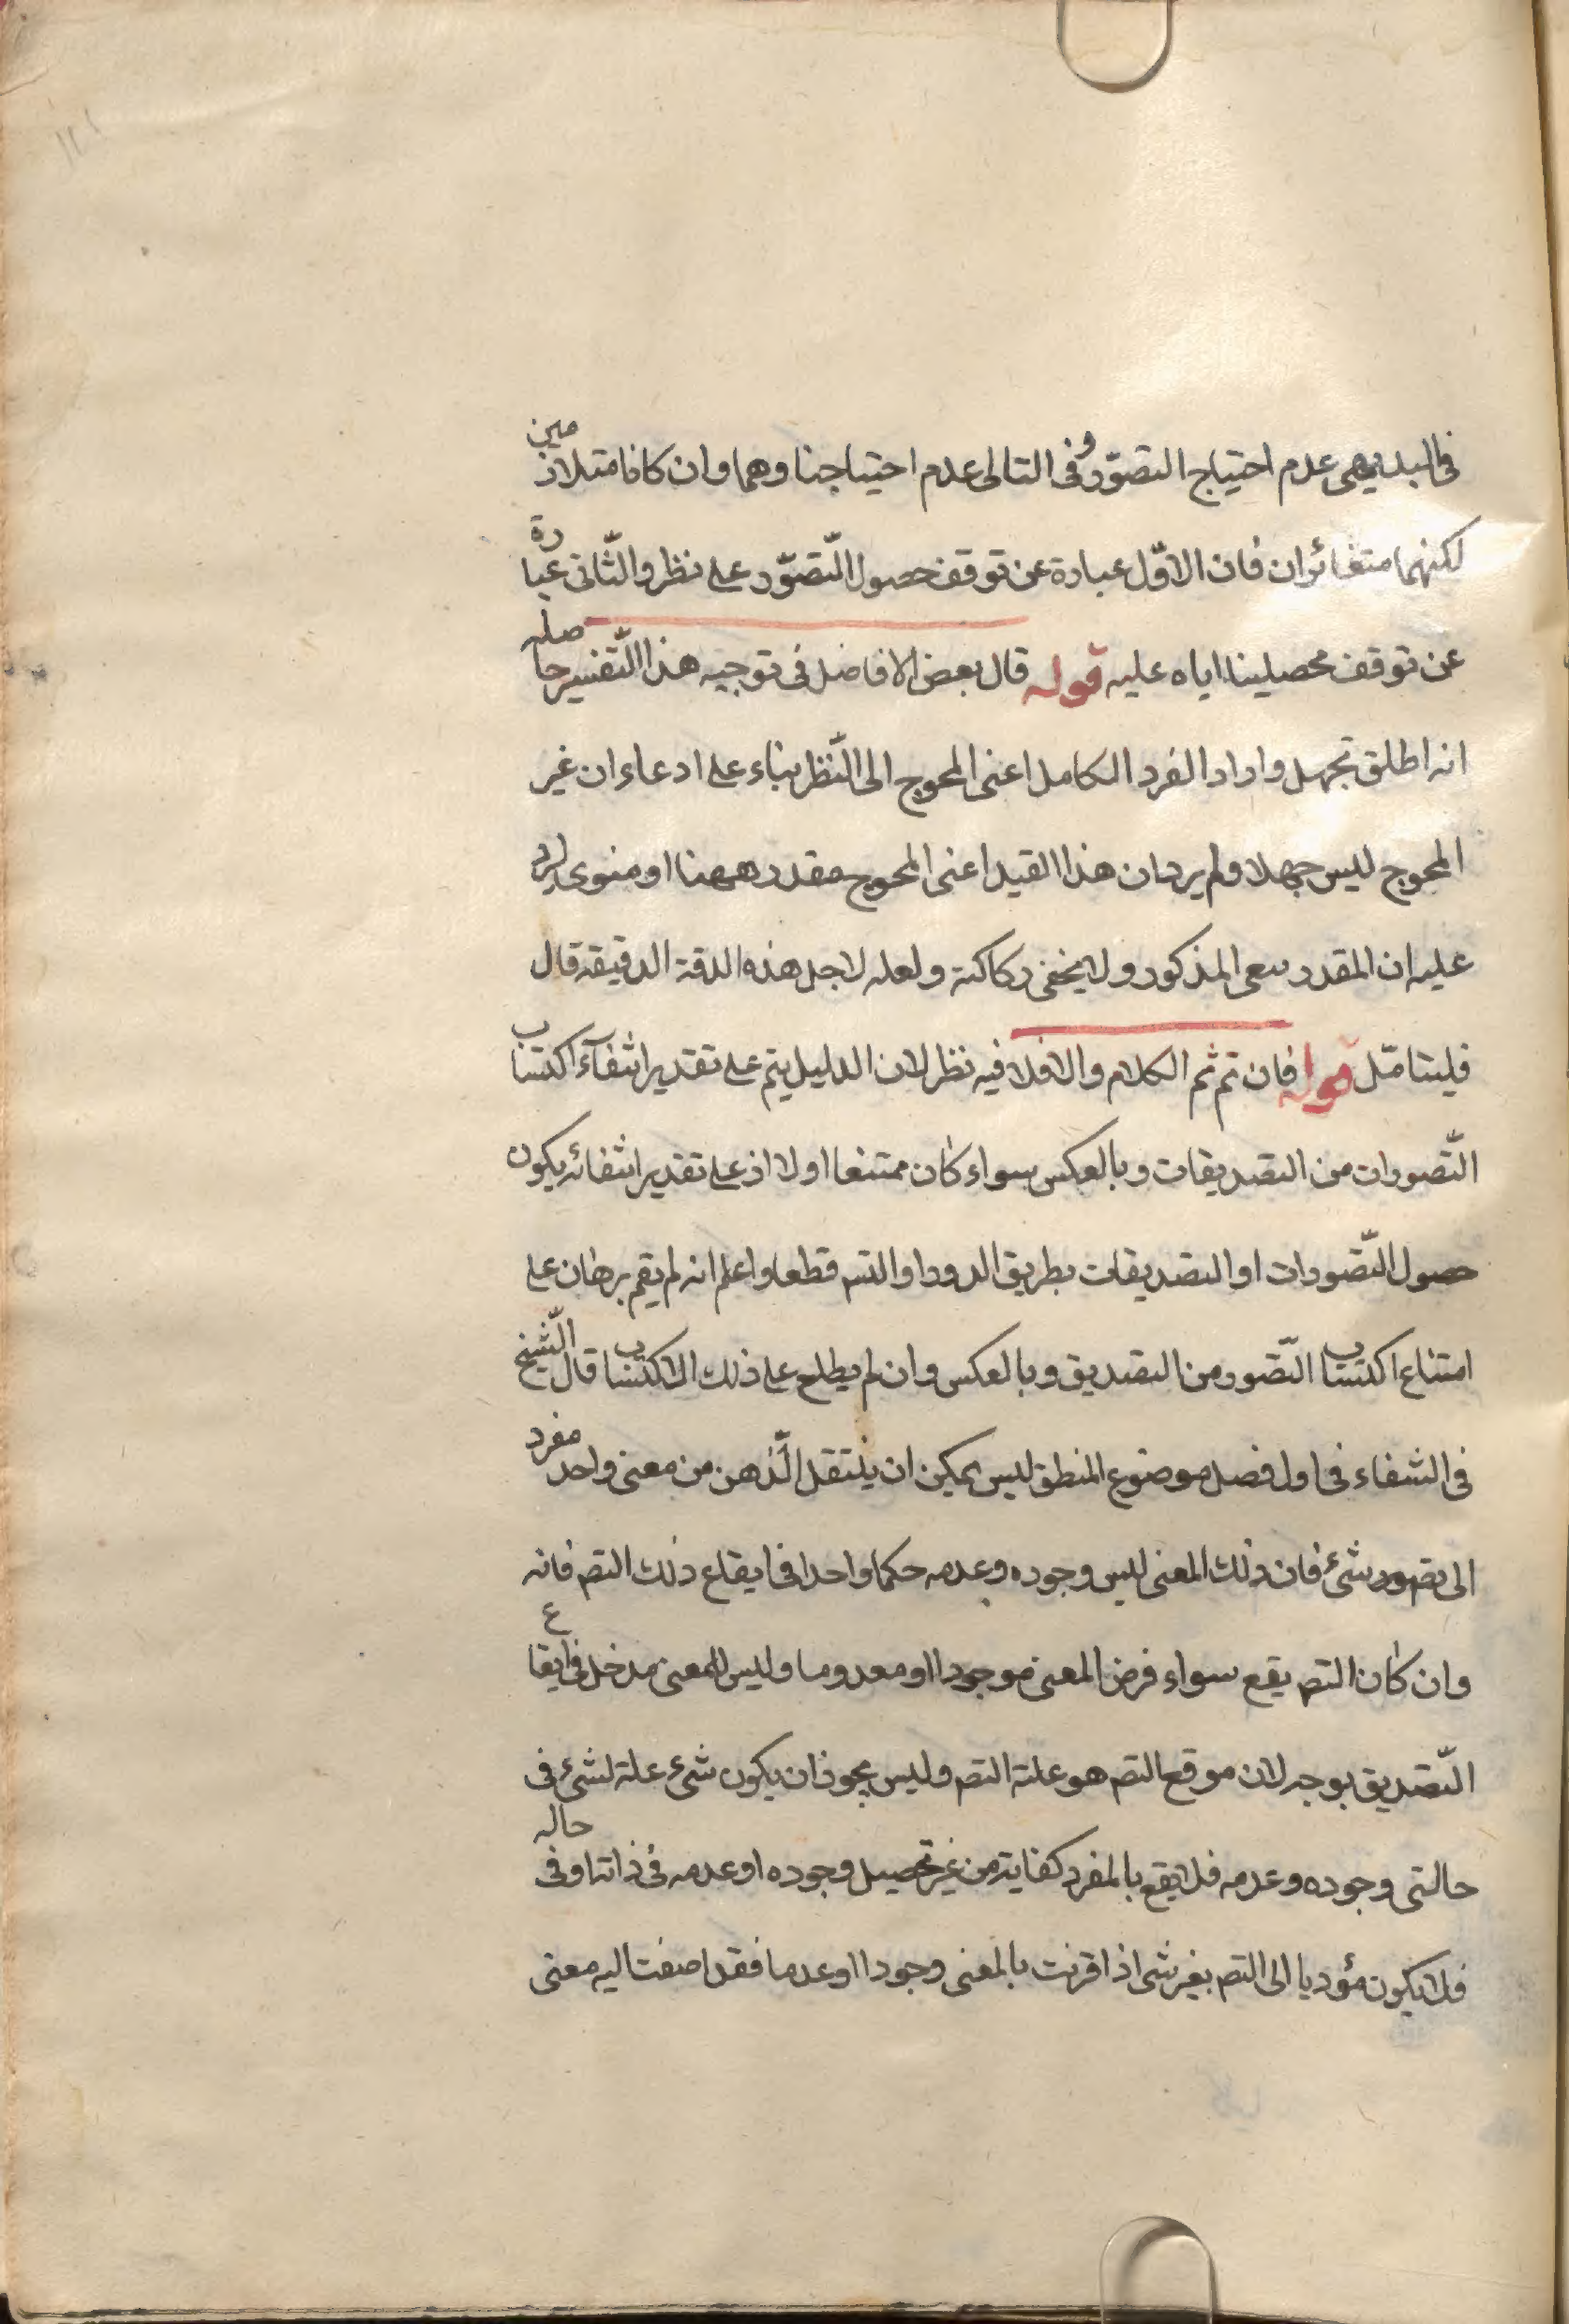 فى البديهى عدم احتياج التصوّر وفى التالى عدم احتياجنا وهما وان كانا متلازمين
لكنهما متغائران فان الاوّل عبارة عن توقف حصول التّصوّر على نظر والثّانى عبارة
عن توقف تحصيلنا اياه عليه قوله قال بعض الافاضل فى توجيه هذا التّفسير حاصله
انه اطلق تجهل واراد الفرد الكامل اعنى المحوج الى النّظر بناء على ادعاء ان غير
المحوج ليس جهلا ولم يرد ان هذا القيد اعنى المحوج مقدر ههنا او منوى ليرد
عليه ان المقدر المذكور ولا يخفى ركاكته ولعله لاجل هذه الدقة الدقيقة قال
فليتامّل قوله فان تم تم الكلام والا فلا فيه نظر لان الدليل يتم على تقدير انتفآء اكتساب
التّصورات من التصديقات وبالعكس سواء كان ممتنعا اولا اذ على تقدير انتفائه يكون
حصول التّصورات او التصديقات بطريق الدور او التس قطعا واعلم انه لم يقم برهان على
امتناع اكتساب التّصور من التصديق وبالعكس وان لم يطلع على ذلك الاكتساب قال الشّيخ
فى الشفاء فى اول فصل موضوع المنطق ليس يمكن ان ينتقل الذّهن من معنى واحد مفرد
الى تصور شئ فان ذلك المعنى ليس وجوده وعدمه حكما واحدا فى ايقاع ذلك التص فانه
وان كان التص يقع سواء فرض المعنى موجودا او معدوما وليس للمعنى مدخل فى ايقاع
التّصديق بوجه لان موقع التص هو علة التص وليس يجوز ان يكون شئ علة لشئ فى
حالتى وجوده وعدمه فلا يقع بالمفرد كفاية من غير تحصيل وجوده او عدمه فى ذاته او فى حاله
فلا يكون مؤديا الى التص بغير شى اذا قرنت بالمعنى وجودا او عدما فقد اضفت اليه معنى